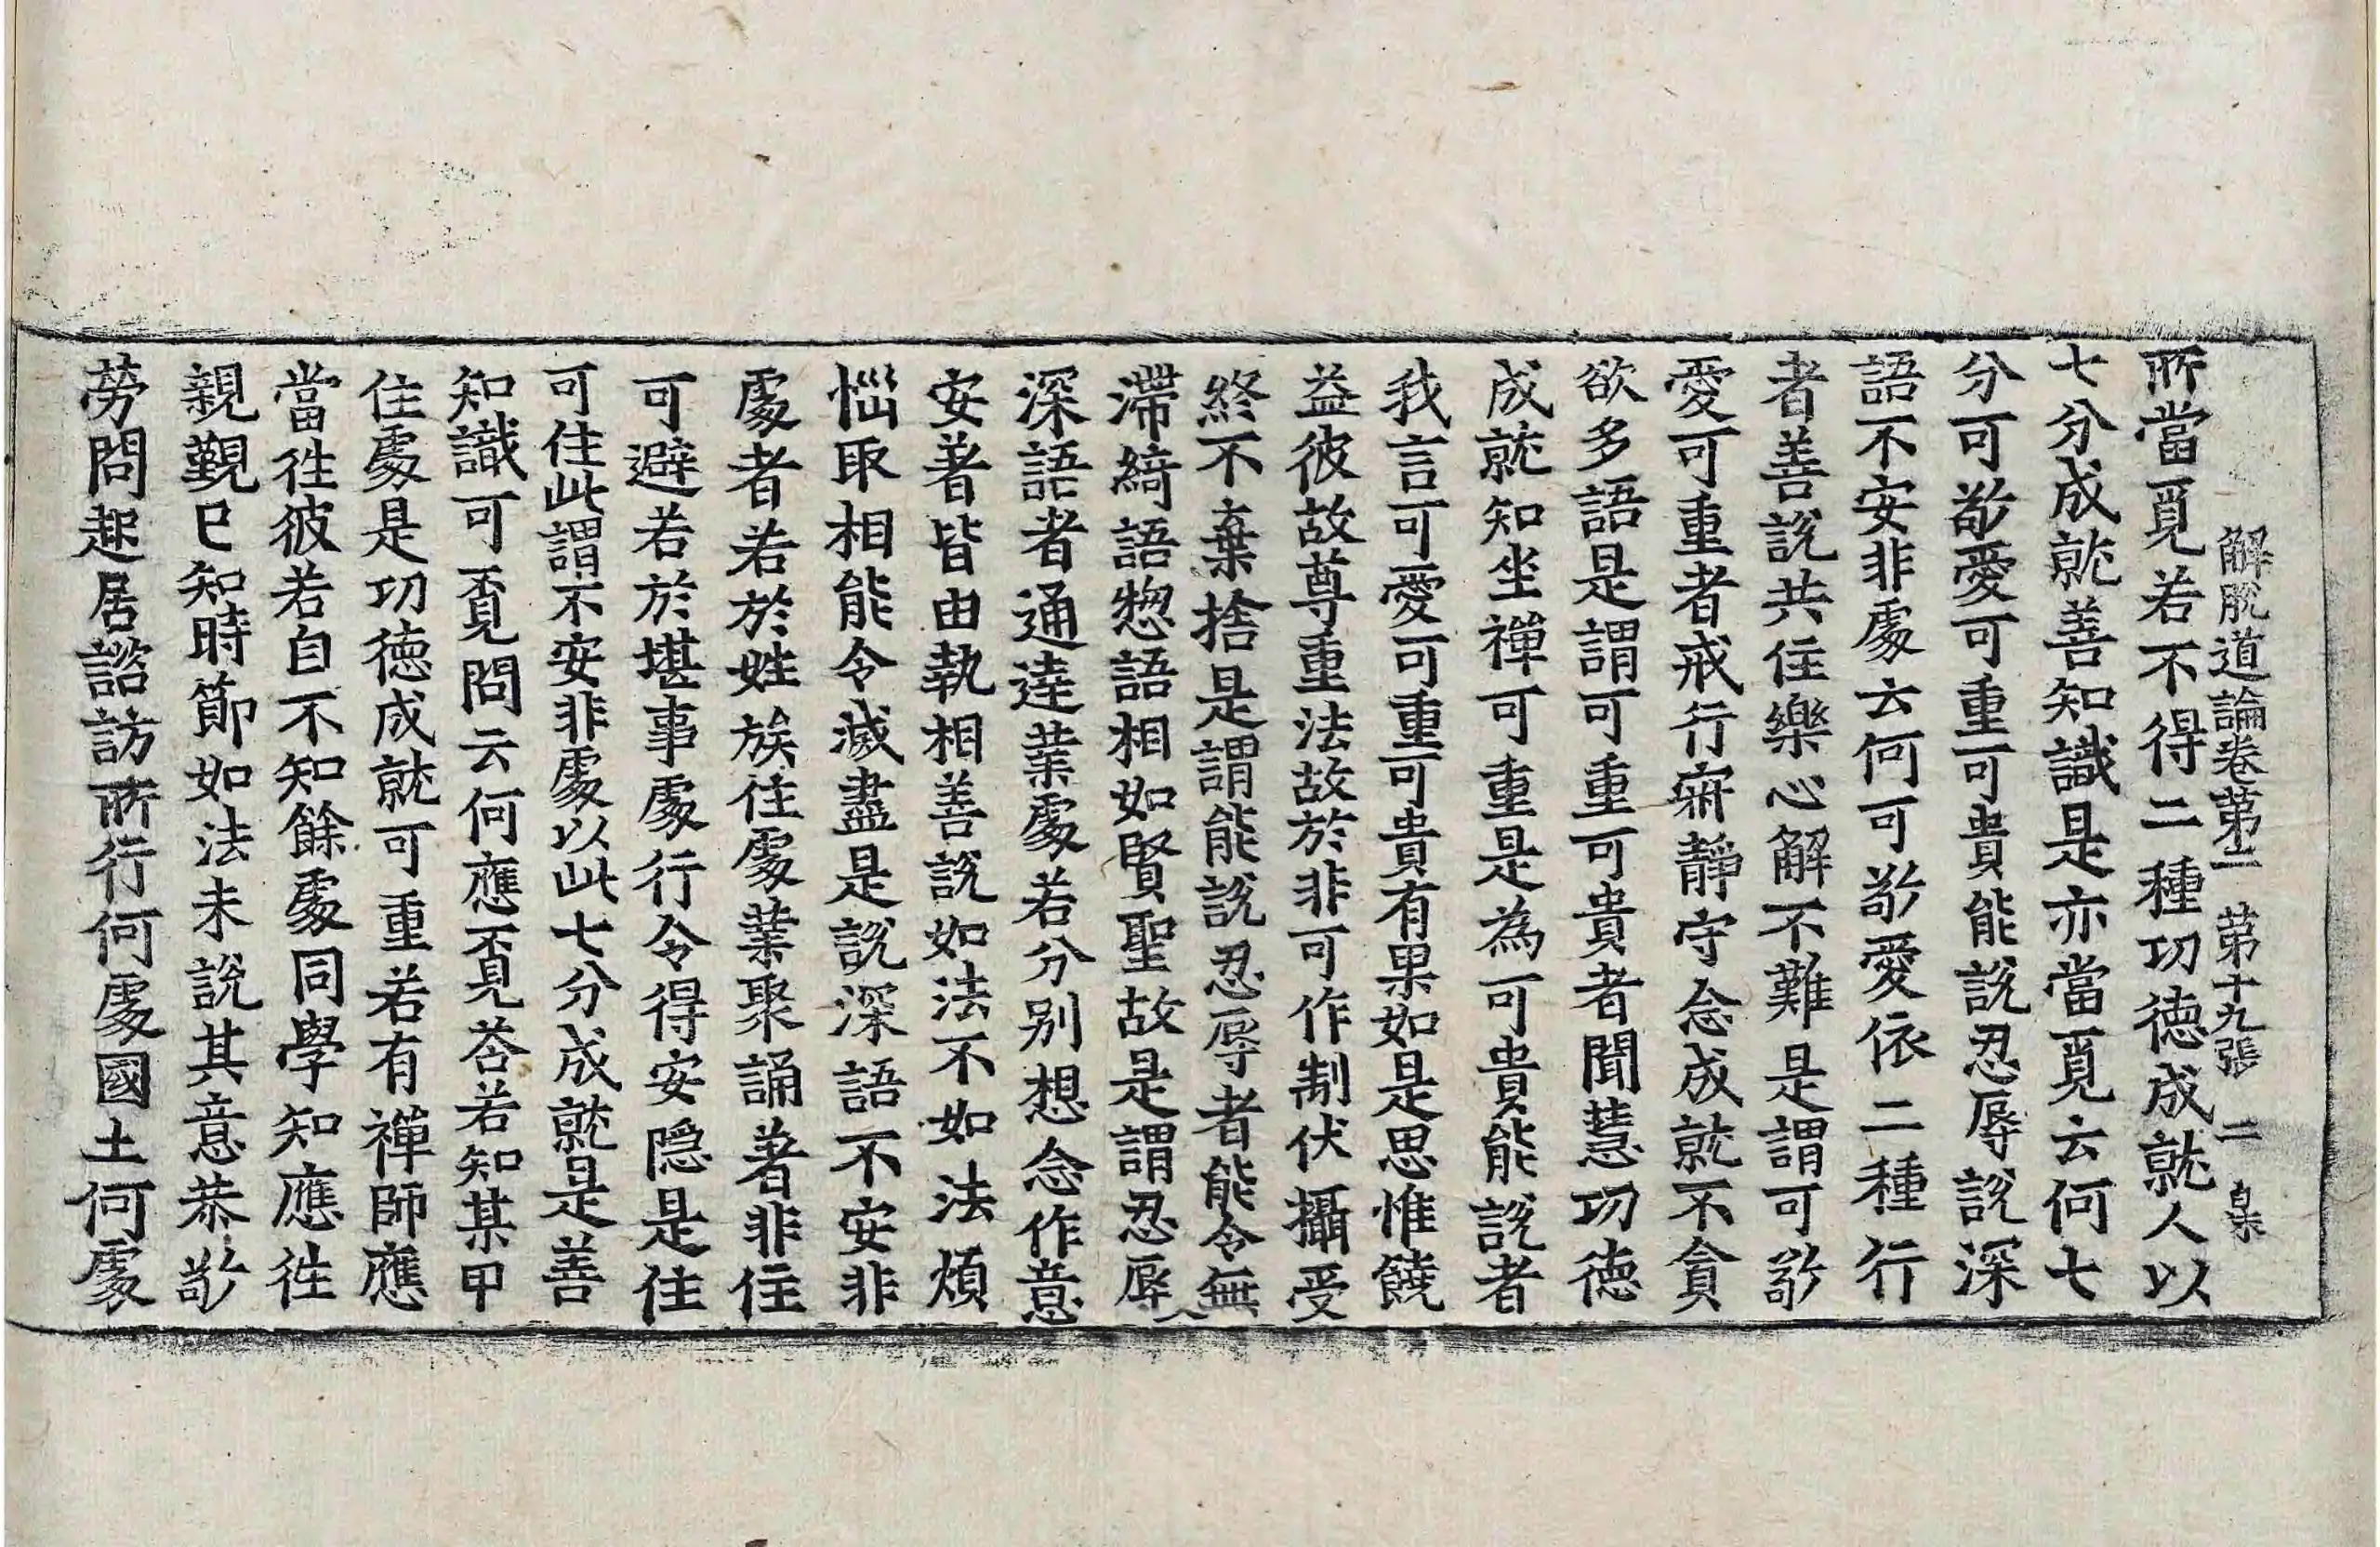 解脫道論卷第二 第十九張 二 皐
所當覓若不得二種功德成就人以
七分成就善知識是亦當覓云何七
分可敬愛可重可貴能說忍辱說深
語不安非處云何可敬愛依二種行
者善說共住樂心解不難是謂可敬
愛可重者戒行寂靜守念成就不貪
欲多語是謂可重可貴者聞慧功德
成就知坐禪可重是為可貴能說者
我言可愛可重可貴有果如是思惟饒
益彼故尊重法故於非可作制伏攝受
終不棄捨是謂能說忍辱者能令無
滯綺語惣語相如賢聖故是謂忍辱
深語者通達業處若分別想念作意
安著皆由執相善說如法不如法煩
惱取相能令滅盡是說深語不安非
處者若於姓族住處業聚誦著非住
可避若於堪事處行令得安隱是住
可住此謂不安非處以此七分成就是善
知識可覔問云何應覔荅若知某甲
住處是功德成就可重若有禪師應
當徃彼若自不知餘處同學知應徃
親覲已知時節如法未說其意恭敬
勞問起居諮訪所行何處國土何處